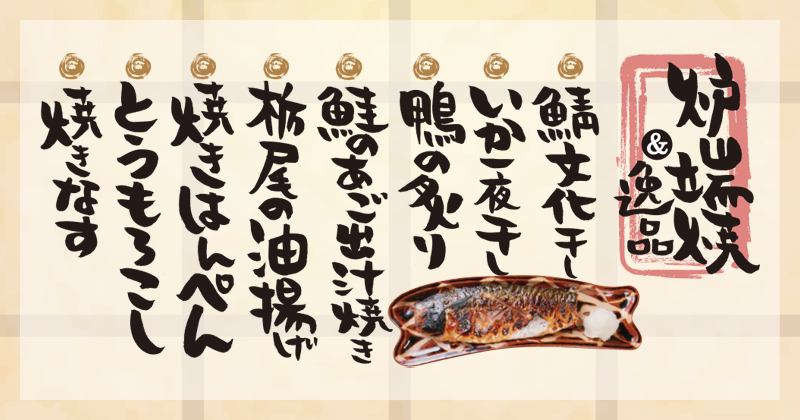 炉端焼
&
逸品
鯖文化干し
いか一夜干し
鴨の炙り
鮭のあご出汁焼き
栃尾の油揚げ
焼きはんぺん
とうもろこし
焼きなす